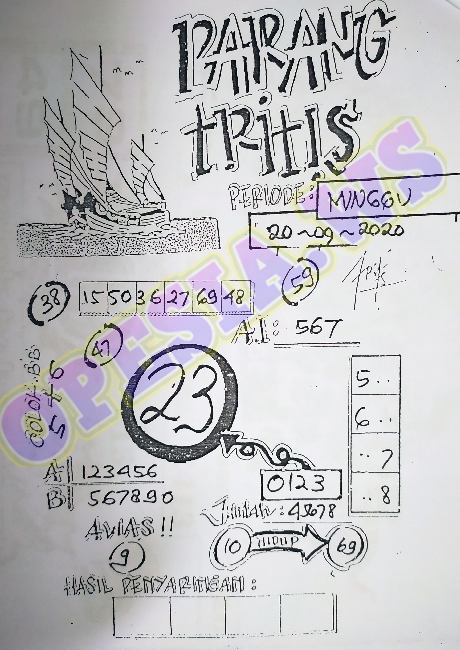 PARANG
TRITIS
PERIODE: MINGGU
20-09-2020
38
15 50 36 27 69 48
59
A.I: 567
47
COLOK BB
5 + 6
23
5..
6..
..7
..8
0123
A 123456
B 567890
Jumlah: 45678
AVIAS!!
9
10 HIDUP 69
HASIL PENYARINGAN:
OPESIA.NS